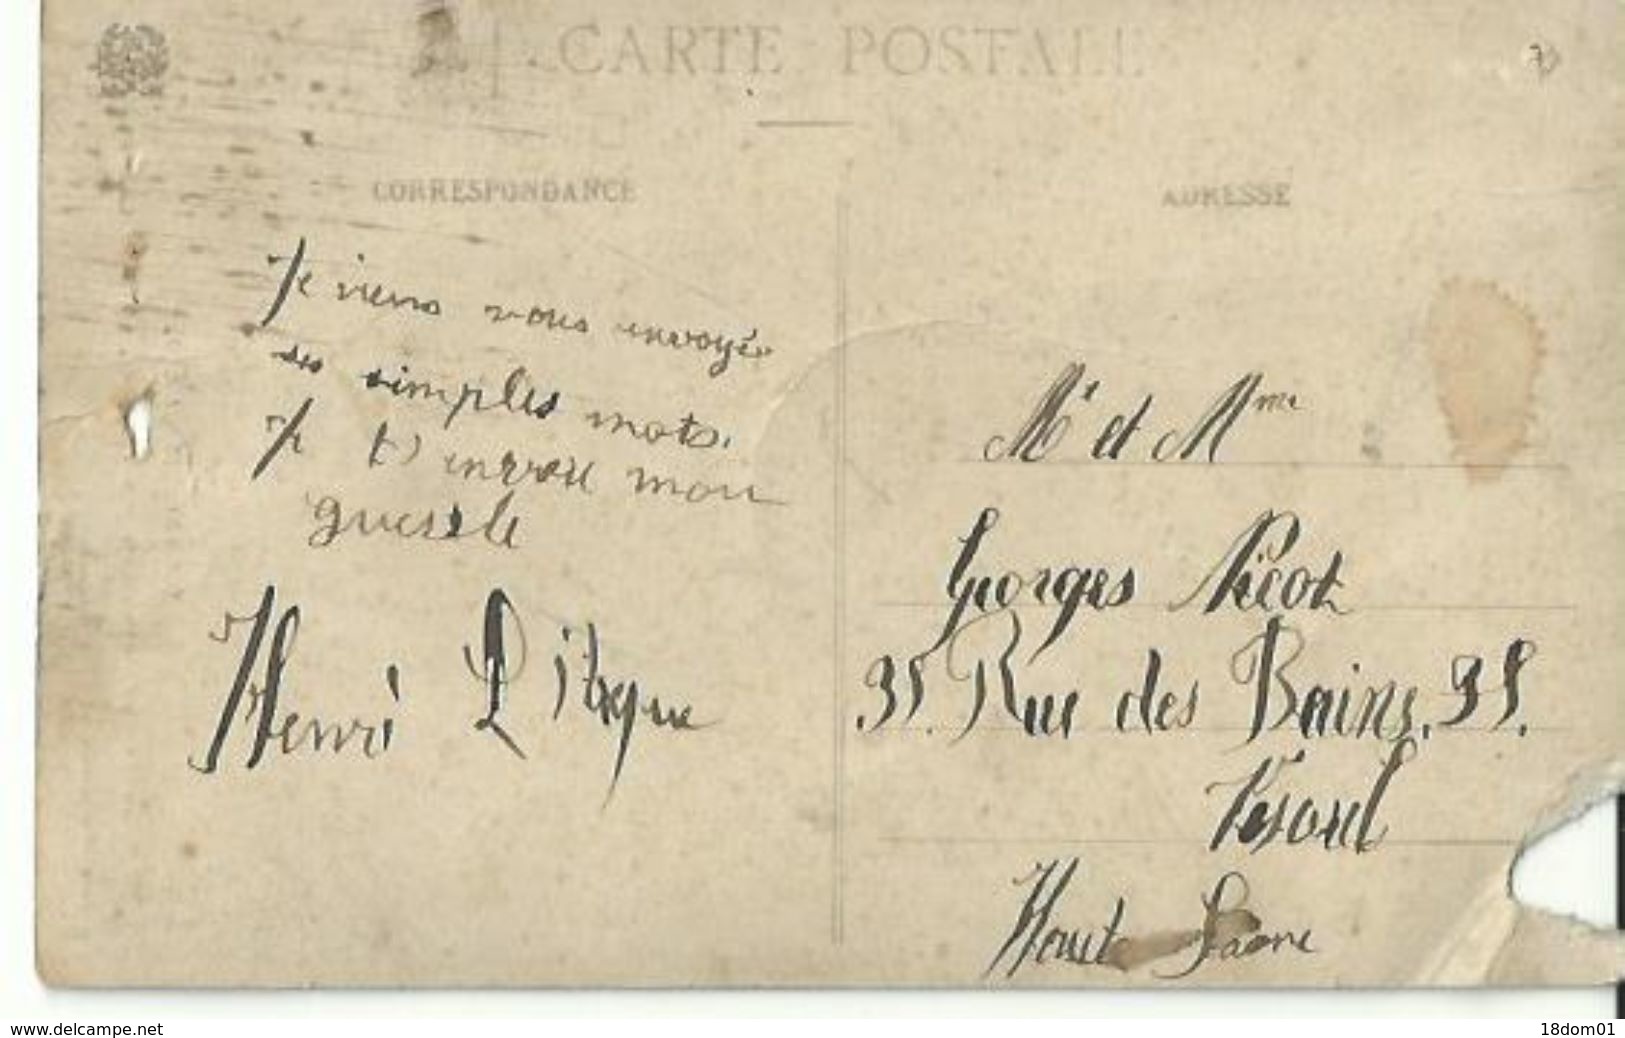 CARTE POSTALE
CORRESPONDANCE
Je viens vous envoyée
ses simples mots.
Je t'envoie mon
guesele
Henri
ADRESSE
Mr et Mme
Georges Picot
35. Rue des Bains. 35.
Vesoul
Haute Saone
www.delcampe.net
18dom01